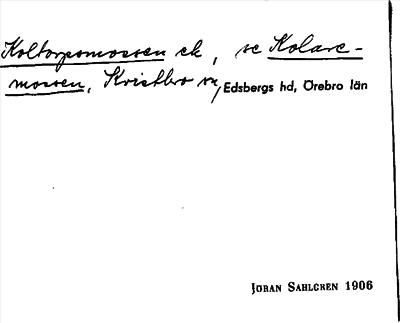 Koltorpsmossen ek, se Kolare-
mossen, Kvistbro sn, Edsbergs hd, Örebro län
JÖRAN SAHLGREN 1906